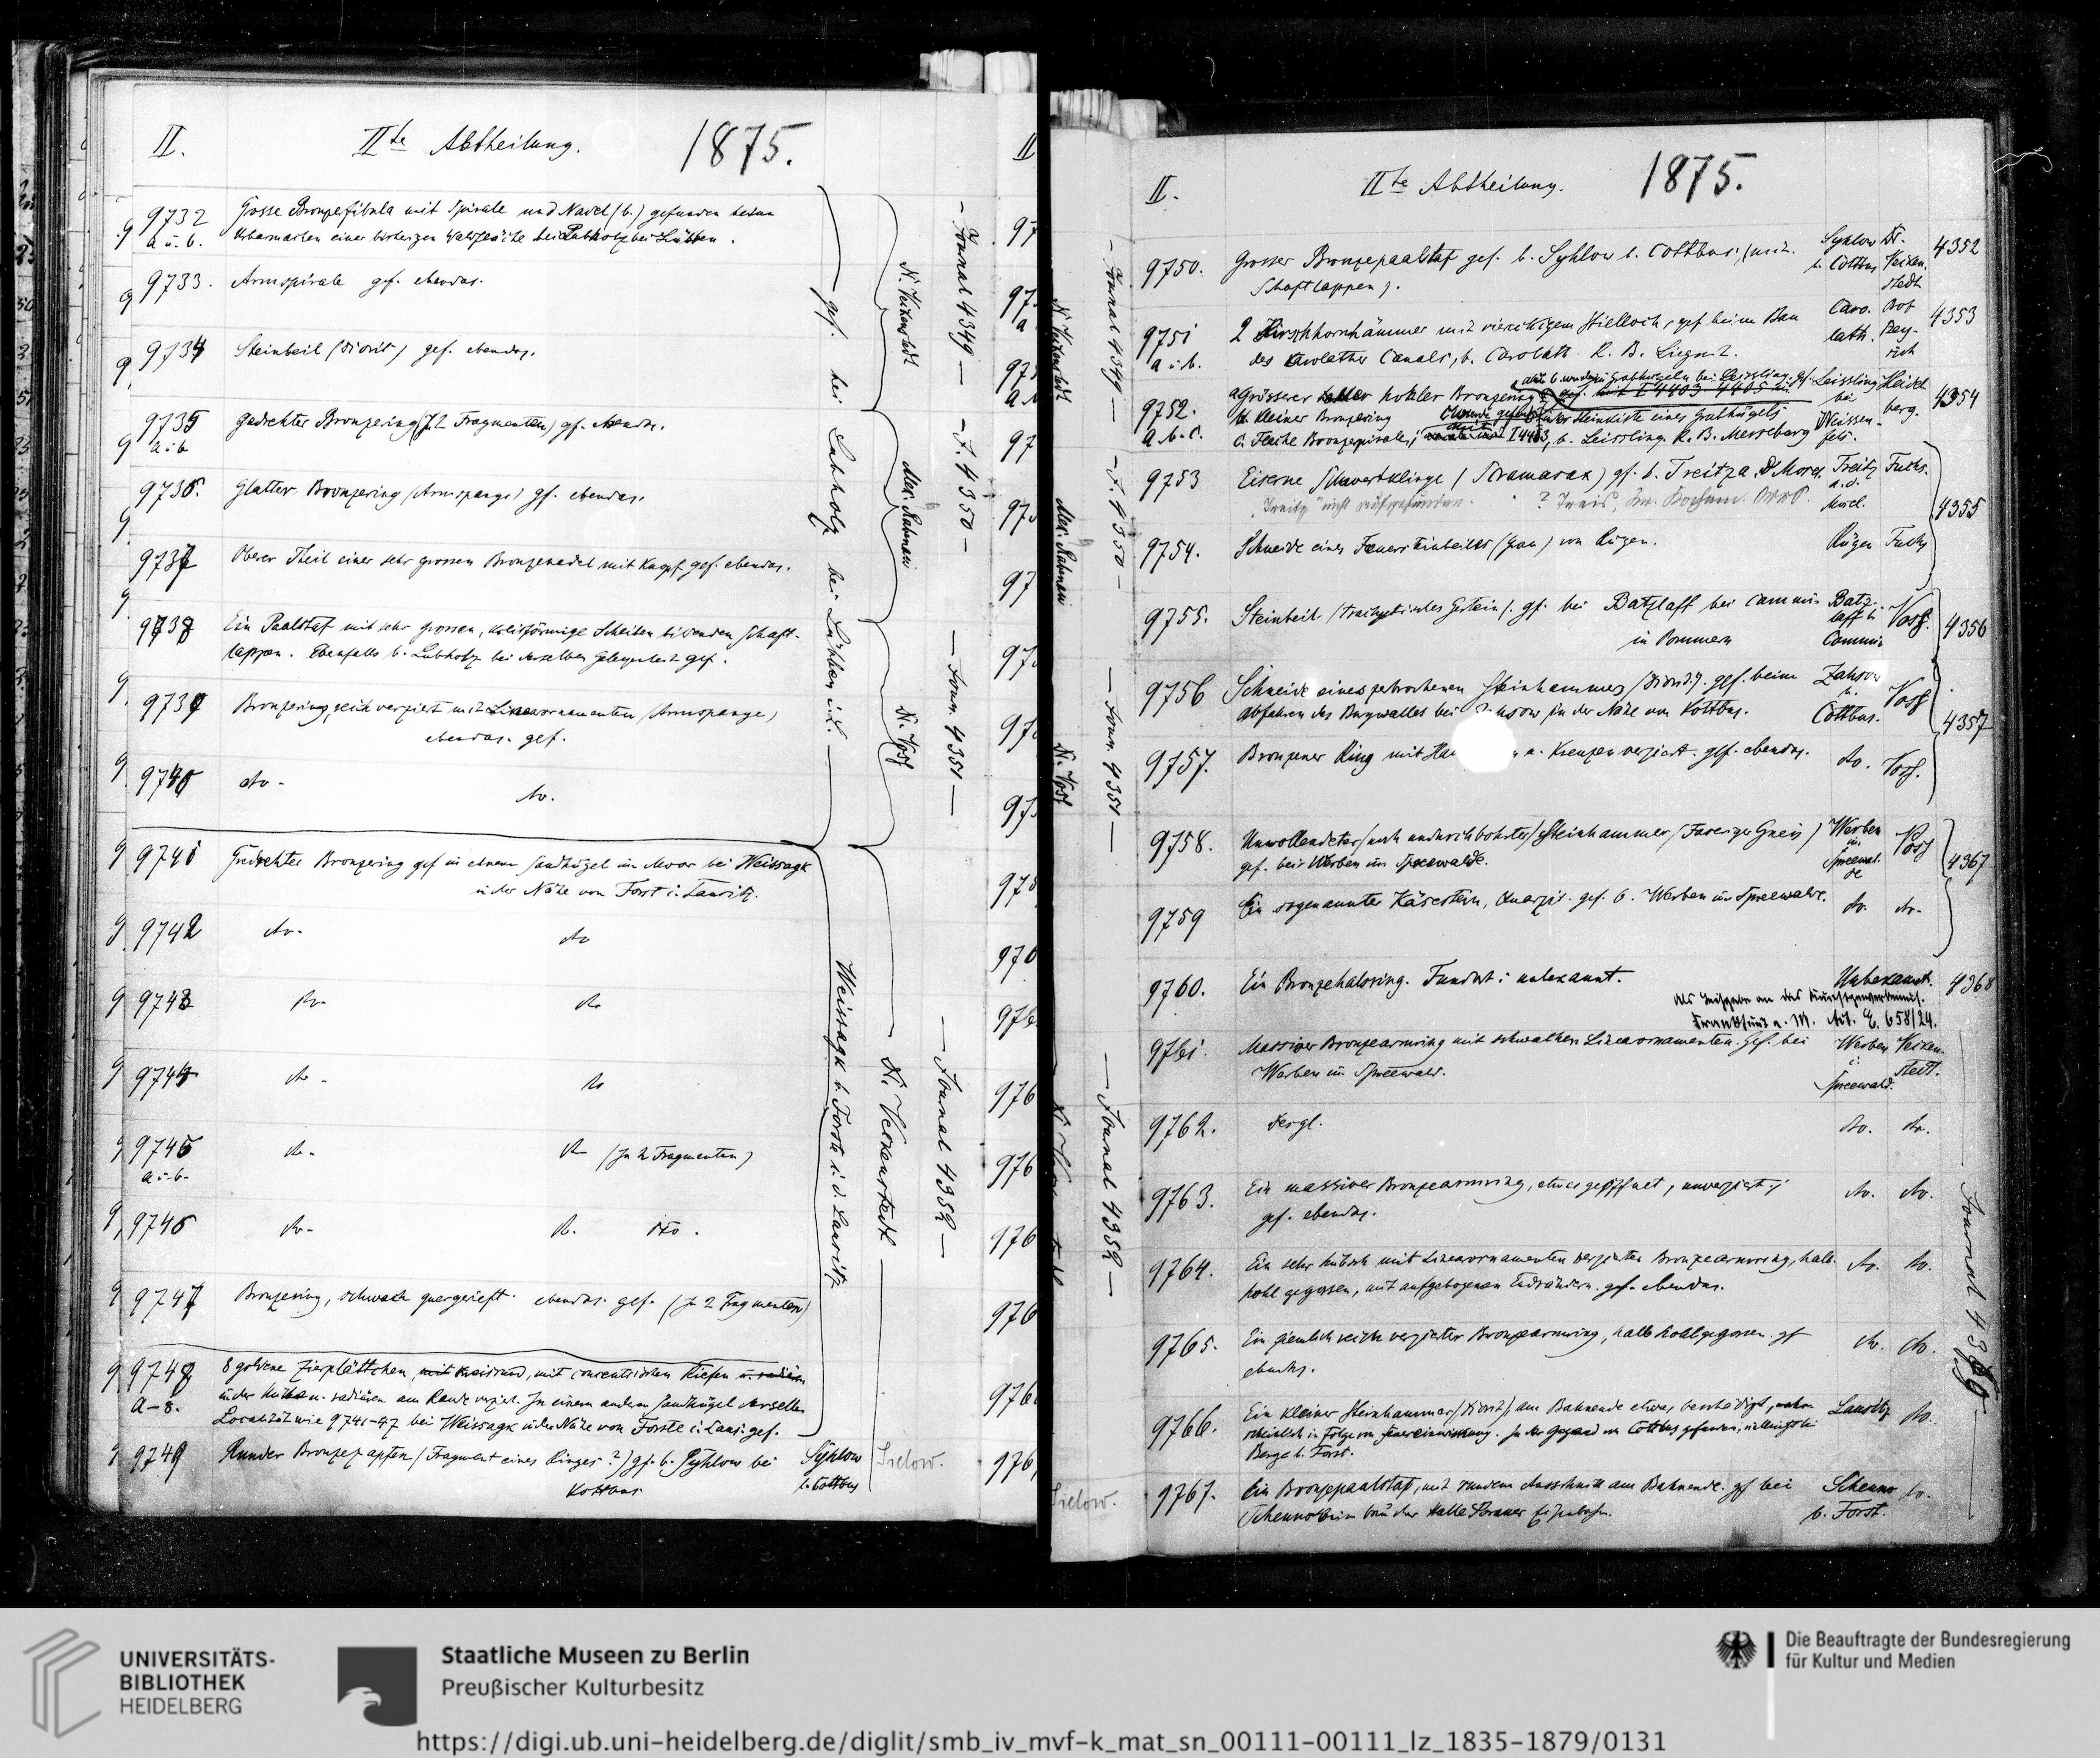 II. IIte Abtheilung. 1875.
9732 Grosse Bronzefibula mit Spirale und Nadel (b.) gefunden beim
a u. b. Urbarmachen einer bisherigen Waldfläche bei Lubholz bei Lübben.
9733. Armspirale gef. ebendas.
9734 Steinbeil (Diorit) gef. ebendas.
9735 Gedrehter Bronzering (2 Fragmenten) gf. ebendas.
a u. b
9736. Glatter Bronzering (Armspange) gf. ebendas.
9737 Oberer Theil einer sehr grossen Bronzenadel mit Knopf gef. ebendas.
9738 Ein Paalstaf mit sehr grossen, Scheiben bildenden Schaft-
lappen. Ebenfalls b. Lubholz bei derselben Gelegenheit gef.
9739 Bronzering, reich verziert mit Linearornamenten (Armspange)
ebendas. gef.
9740 do. do.
gef. bei Lubholz bei Lübben
Alex. Rabenau
Dr. Voss
— Journal 4349 — — J. 4350 — — Journ. 4351 —
9741 Gedrehter Bronzering gef in einem Sandhügel im Moor bei Weissagk
in der Nähe von Forst i. Lausitz.
9742 do. do
9743 do. do.
9744 do. do
9745 do. do (In 2 Fragmenten)
a u. b.
9746 do. do. do.
9747 Bronzering, schwach quergerieft. ebendas. gef. (In 2 Fragmenten)
Weissagk b. Forst i. d. Lausitz
Dr. Veckenstedt
— Journal 4352 —
9748 8 goldene Zierplättchen, mit concentrischen Riefen
a–8. in der Mitte u. radiären am Rande verziert. In einem andern Sandhügel derselben
Localität wie 9741–47 bei Weissagk in der Nähe von Forste i. Laus. gef.
9749 Runder Bronzezapfen (Fragment eines Ringes?) gf. b. Syhlow bei Syhlow Sielow.
Kottbus b. Cottbus
II. IIte Abtheilung. 1875.
9750. Grosser Bronzepaalstaf gef. b. Syhlow b. Cottbus, (mit Syhlow Dr. 4352
Schaftlappen). b. Cottbus Vecken-
stedt
9751 2 Hirschhornhämmer mit viereckigem Stielloch, gef beim Bau Caro- 4353
a u. b. des Carolather Canals, b. Carolath R. B. Liegnitz. lath.
9752. a Grösserer hohler Bronzering Leissling Heidel- 4354
a. b. c. b. kleiner Bronzering in der Steinkiste eines Grabhügels bei berg.
c. Flache Bronzespirale; b. Leissling. R. B. Merseburg Weissen-
fels.
9753 Eiserne Schwertklinge (Scramasax) gf. b. Treitz a. d. Mosel. Treitz Fuchs.
"Treitz" nicht aufgefunden. ? Treis, Kr. Kochem. a. d.
Mosel. 4355
9754. Schneide eines Feuersteinbeiles (grau) von Rügen. Rügen Fuchs
9755. Steinbeil (trachytisches Gestein). gf. bei Batzlaff bei Cammin Batz- Voss. 4356
in Pommern laff b.
Cammin
9756 Schneide eines zerbrochenen Steinhammers (Diorit). gef. beim Zahsow Voss
Abfahren des Burgwalles bei Zahsow in der Nähe von Kottbus. b. Cottbus. 4357
9757. Bronzener Ring mit u. Kreuzen verziert. gef. ebendas. do. Voss.
9758. Unvollendeter (noch undurchbohrter) Steinhammer (Faseriger Gneis) Werben Voss 4367
gef. bei Werben im Spreewalde. im
Spreewal-
de
9759 Ein sogenannter Käsestein, Quarzit. gef. b. Werben im Spreewalde. do. do.
9760. Ein Bronzehalsring. Fundort: unbekannt. Unbekannt. 4368
Frankfurt a. M. Act. E. 658/24.
9761. Massiver Bronzearmring mit schwachen Linearornamenten. Gef. bei Werben Vecken-
Werben im Spreewald. i. stedt.
Spreewald.
9762. dergl. do. do.
9763. Ein massiver Bronzearmring, etwas geöffnet, unverziert;
gef. ebendas. do. do.
9764. Ein sehr hübsch mit Linearornamenten verzierter Bronzearmring, halb- do. do.
hohl gegossen, mit aufgebogenen Endrändern. gef. ebendas.
9765. Ein ziemlich reich verzierter Bronzearmring, halb hohl gegossen. gf do. do.
ebendas.
9766. Ein kleiner Steinhammer (Diorit), am Bahnende etwas beschädigt, wahr- Lausitz do.
scheinlich in Folge von Feuereinwirkung. In der Gegend von Cottbus gefunden, vielleicht bei
Berge b. Forst.
9767. Ein Bronzepaalstaf, mit rundem Ausschnitt am Bahnende. gf bei Scheuno do.
Scheuno beim Bau der Halle Sorauer Eisenbahn. b. Forst.
UNIVERSITÄTS-
BIBLIOTHEK
HEIDELBERG
Staatliche Museen zu Berlin
Preußischer Kulturbesitz
Die Beauftragte der Bundesregierung
für Kultur und Medien
https://digi.ub.uni-heidelberg.de/diglit/smb_iv_mvf-k_mat_sn_00111-00111_lz_1835-1879/0131